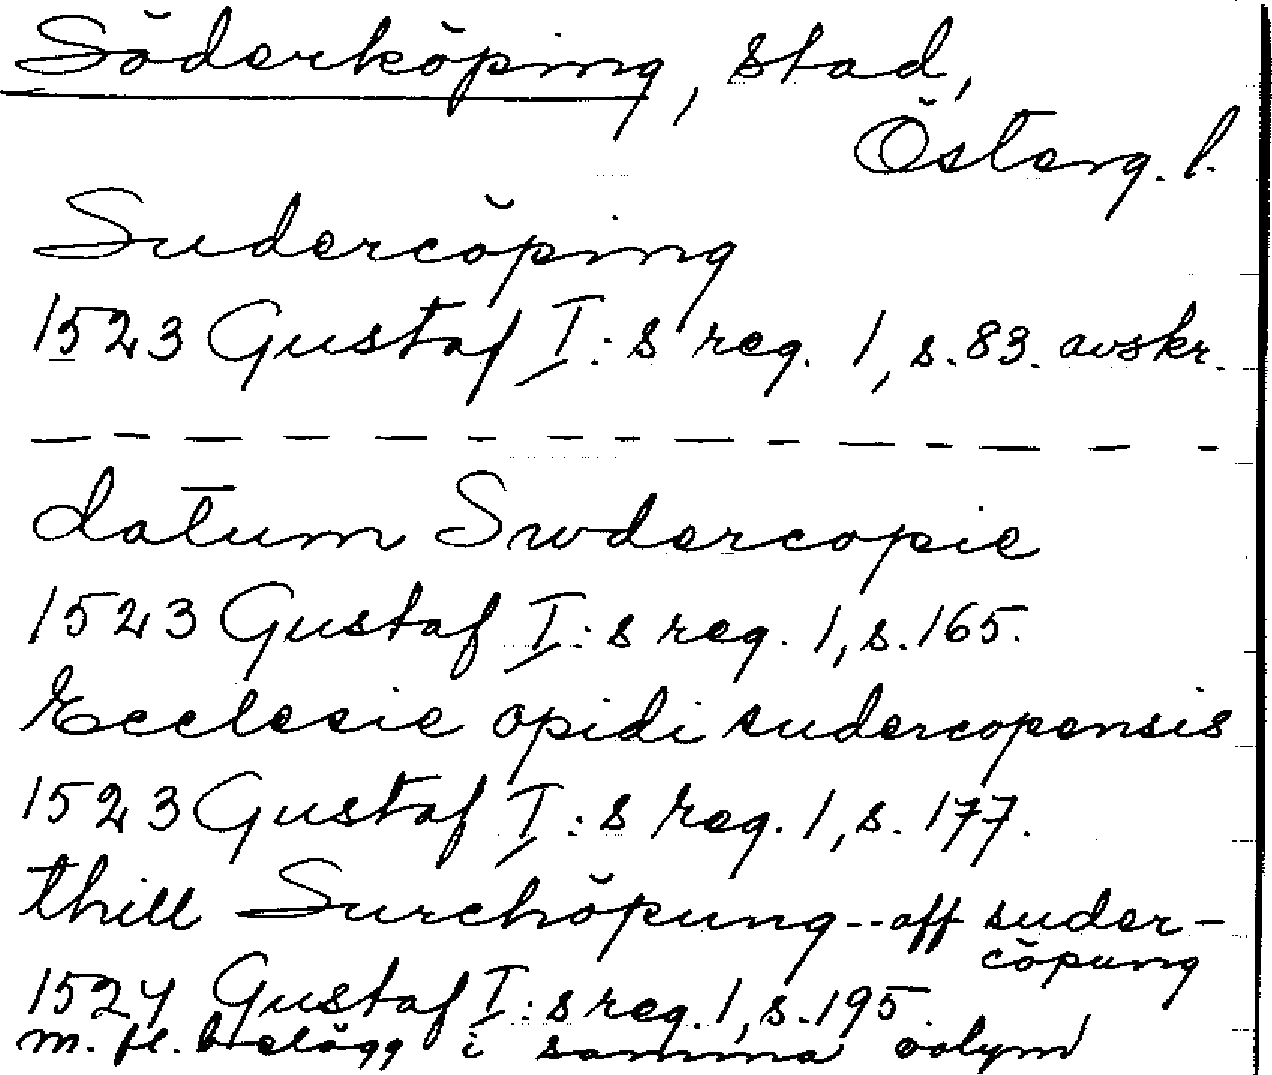 Söderköping, stad,
Österg. l.
Sudercöping
1523 Gustaf I:s reg. 1, s. 83. avskr.
datum Swdercopie
1523 Gustaf I:s reg. 1, s. 165.
Ecclesie opidi sudercopensis
1523 Gustaf I:s reg. 1, s. 177.
thill Surchöpung -- aff suder-
cöpung
1524 Gustaf I:s reg. 1, s. 195.
m. fl. belägg i samma volym